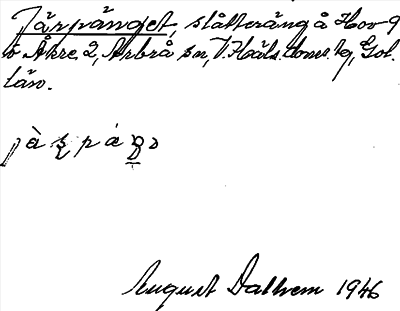 Järpänget, slåtteräng å Hov 9
o Åkre 2, Arbrå sn, V. Häls. doms. tg, Gvl.
län.
August Dalhem 1946